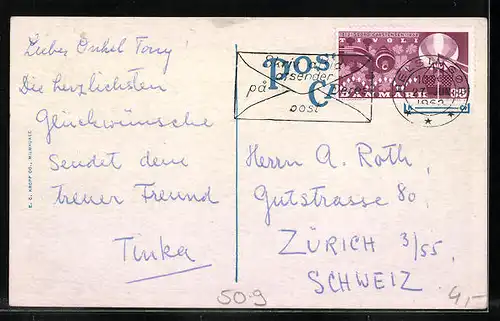 Lieber Onkel Tony!
Die herzlichsten
Glückwünsche
sendet dem
treuer Freund
Tinka
E. C. KROPP CO., MILWAUKEE
POST
CA
afsender
på
post
1812 · GEORG CARSTENSEN · 1962
TIVOLI
DANMARK
1962
Herrn A. Roth,
Gutstrasse 80,
ZÜRICH 3/55,
SCHWEIZ.
50-9
4,-